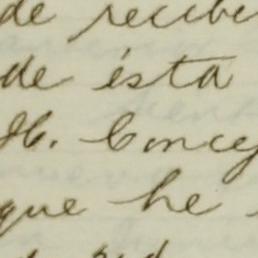 de recibi
de ésta
H. Concej
que he